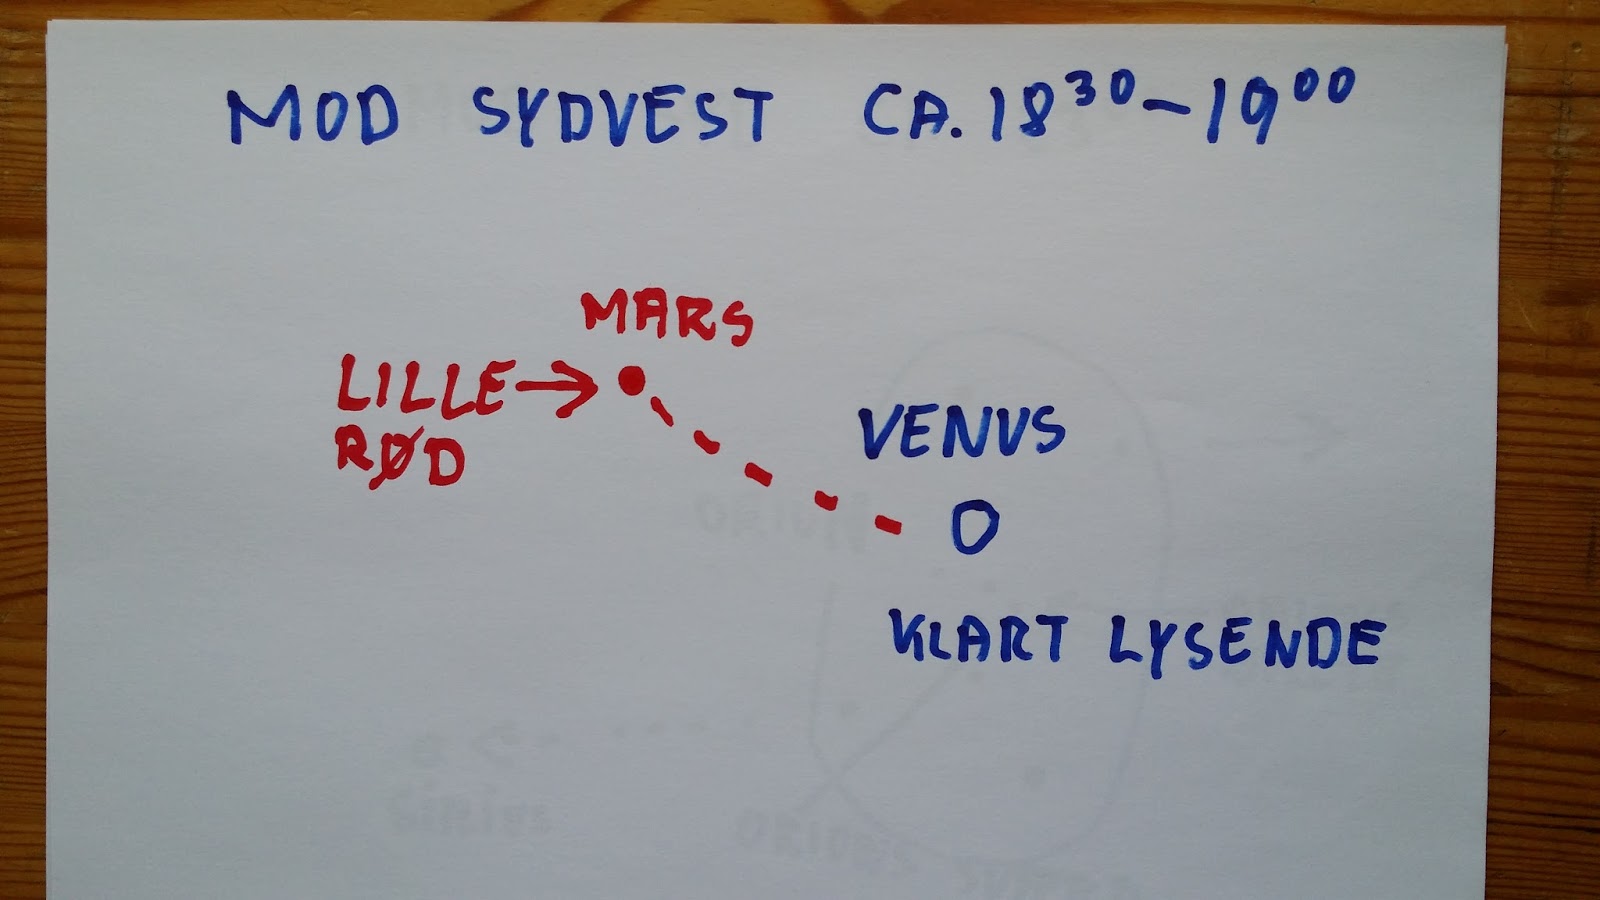 MOD SYDVEST CA. 18³⁰-19⁰⁰
MARS
LILLE
RØD
VENUS
KLART LYSENDE